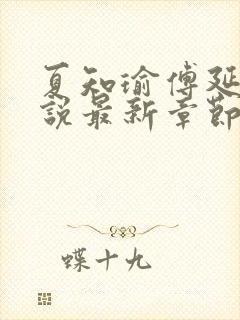 夏知瑜傅延
說最新章節
蝶十九